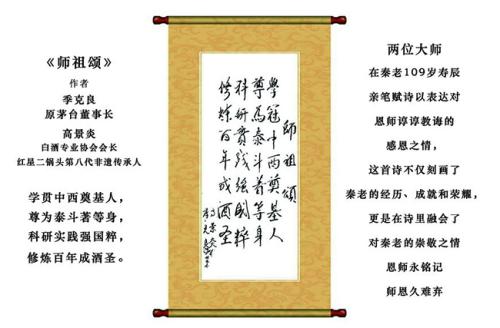 《师祖颂》
作者
季克良
原茅台董事长
高景炎
白酒专业协会会长
红星二锅头第八代非遗传承人
学贯中西奠基人，
尊为泰斗著等身，
科研实践强国粹，
修炼百年成酒圣。
師祖頌
學冠中西奠基人
尊為泰斗著等身
科研實践強國粹
修煉百年成酒圣
两位大师
在秦老109岁寿辰
亲笔赋诗以表达对
恩师谆谆教诲的
感恩之情，
这首诗不仅刻画了
秦老的经历、成就和荣耀，
更是在诗里融会了
对秦老的崇敬之情
恩师永铭记
师恩久难弃